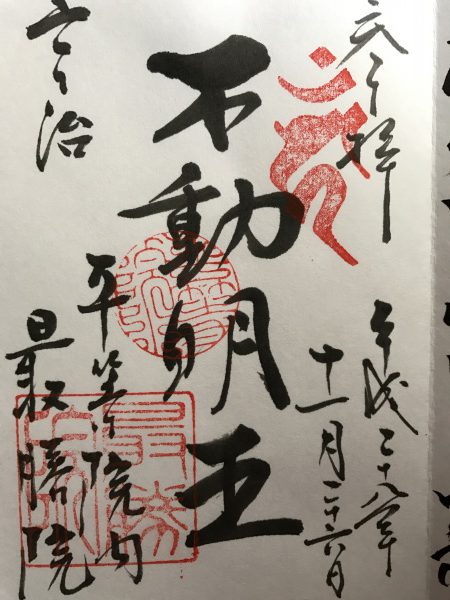 奉拝
平成二十九年
十一月二十六日
不動明王
宇治
平等院内
最勝院